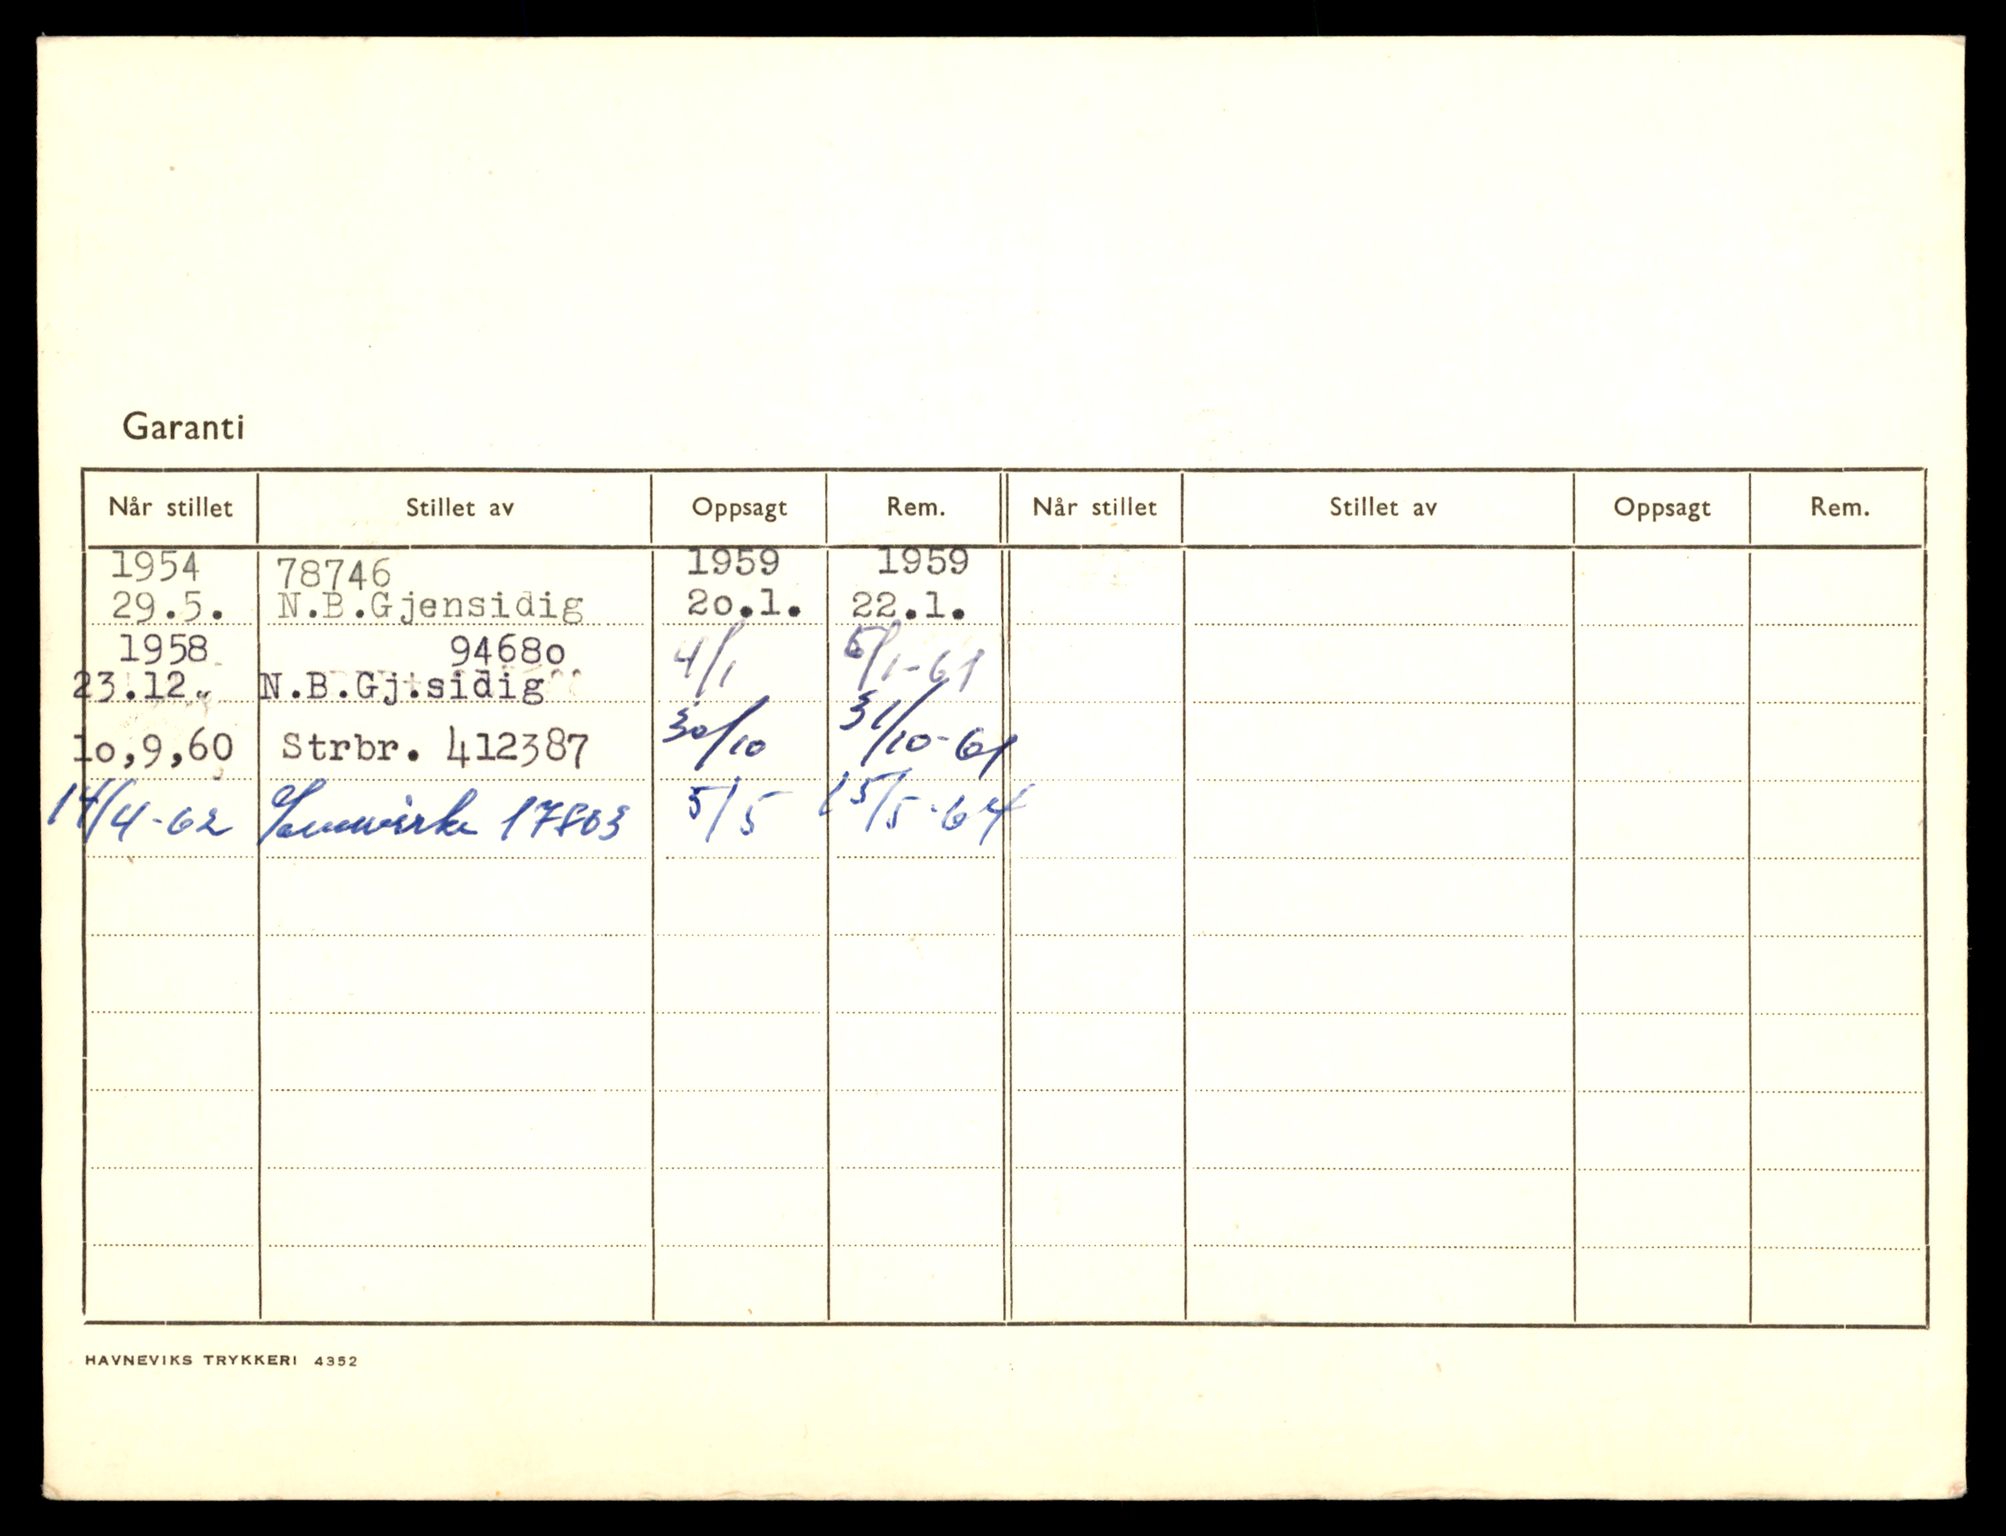 Garanti
Når stillet Stillet av Oppsagt Rem. Når stillet Stillet av Oppsagt Rem.
1954 78746 1959 1959
29.5. N.B.Gjensidig 20.1. 22.1.
1958 94680 4/1 6/1-61
23.12. N.B.Gj.sidig
10,9,60 Strbr. 412387 30/10 31/10-61
14/4-62 Samvirke 17803 5/5 15/5-64
HAVNEVIKS TRYKKERI 4352